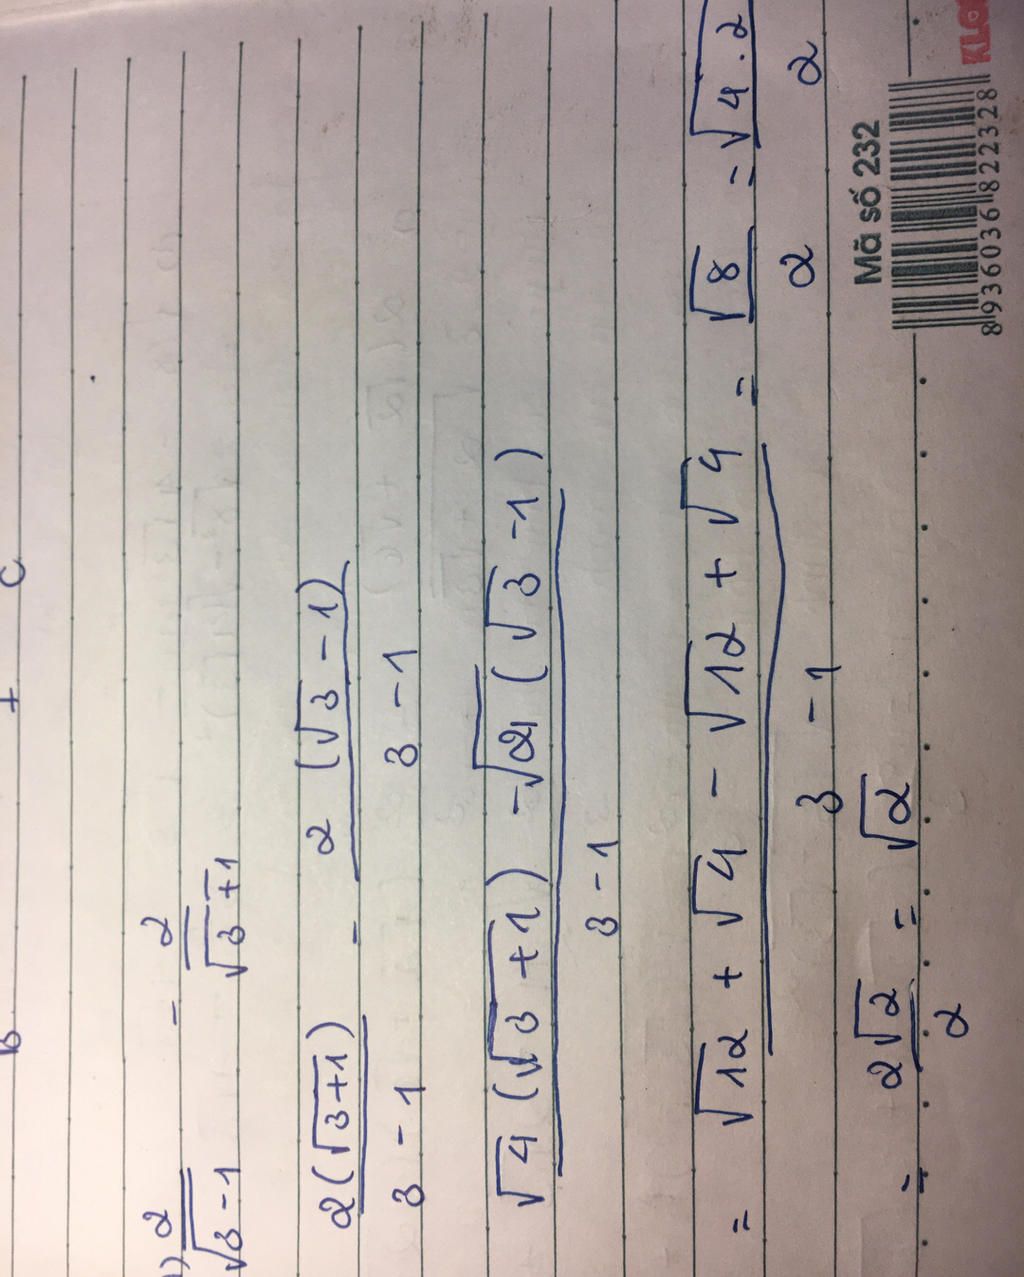 B + C
) 2/(√3 - 1) - 2/(√3 + 1)
2(√3+1)/(3 - 1) - 2 (√3 - 1)/(3 - 1)
(√4 (√3 + 1) - √4 (√3 - 1))/(3 - 1)
= (√12 + √4 - √12 + √4)/(3 - 1) = √8/2 = √4.2/2
= 2√2/2 = √2
Mã số 232
8 936036 822328